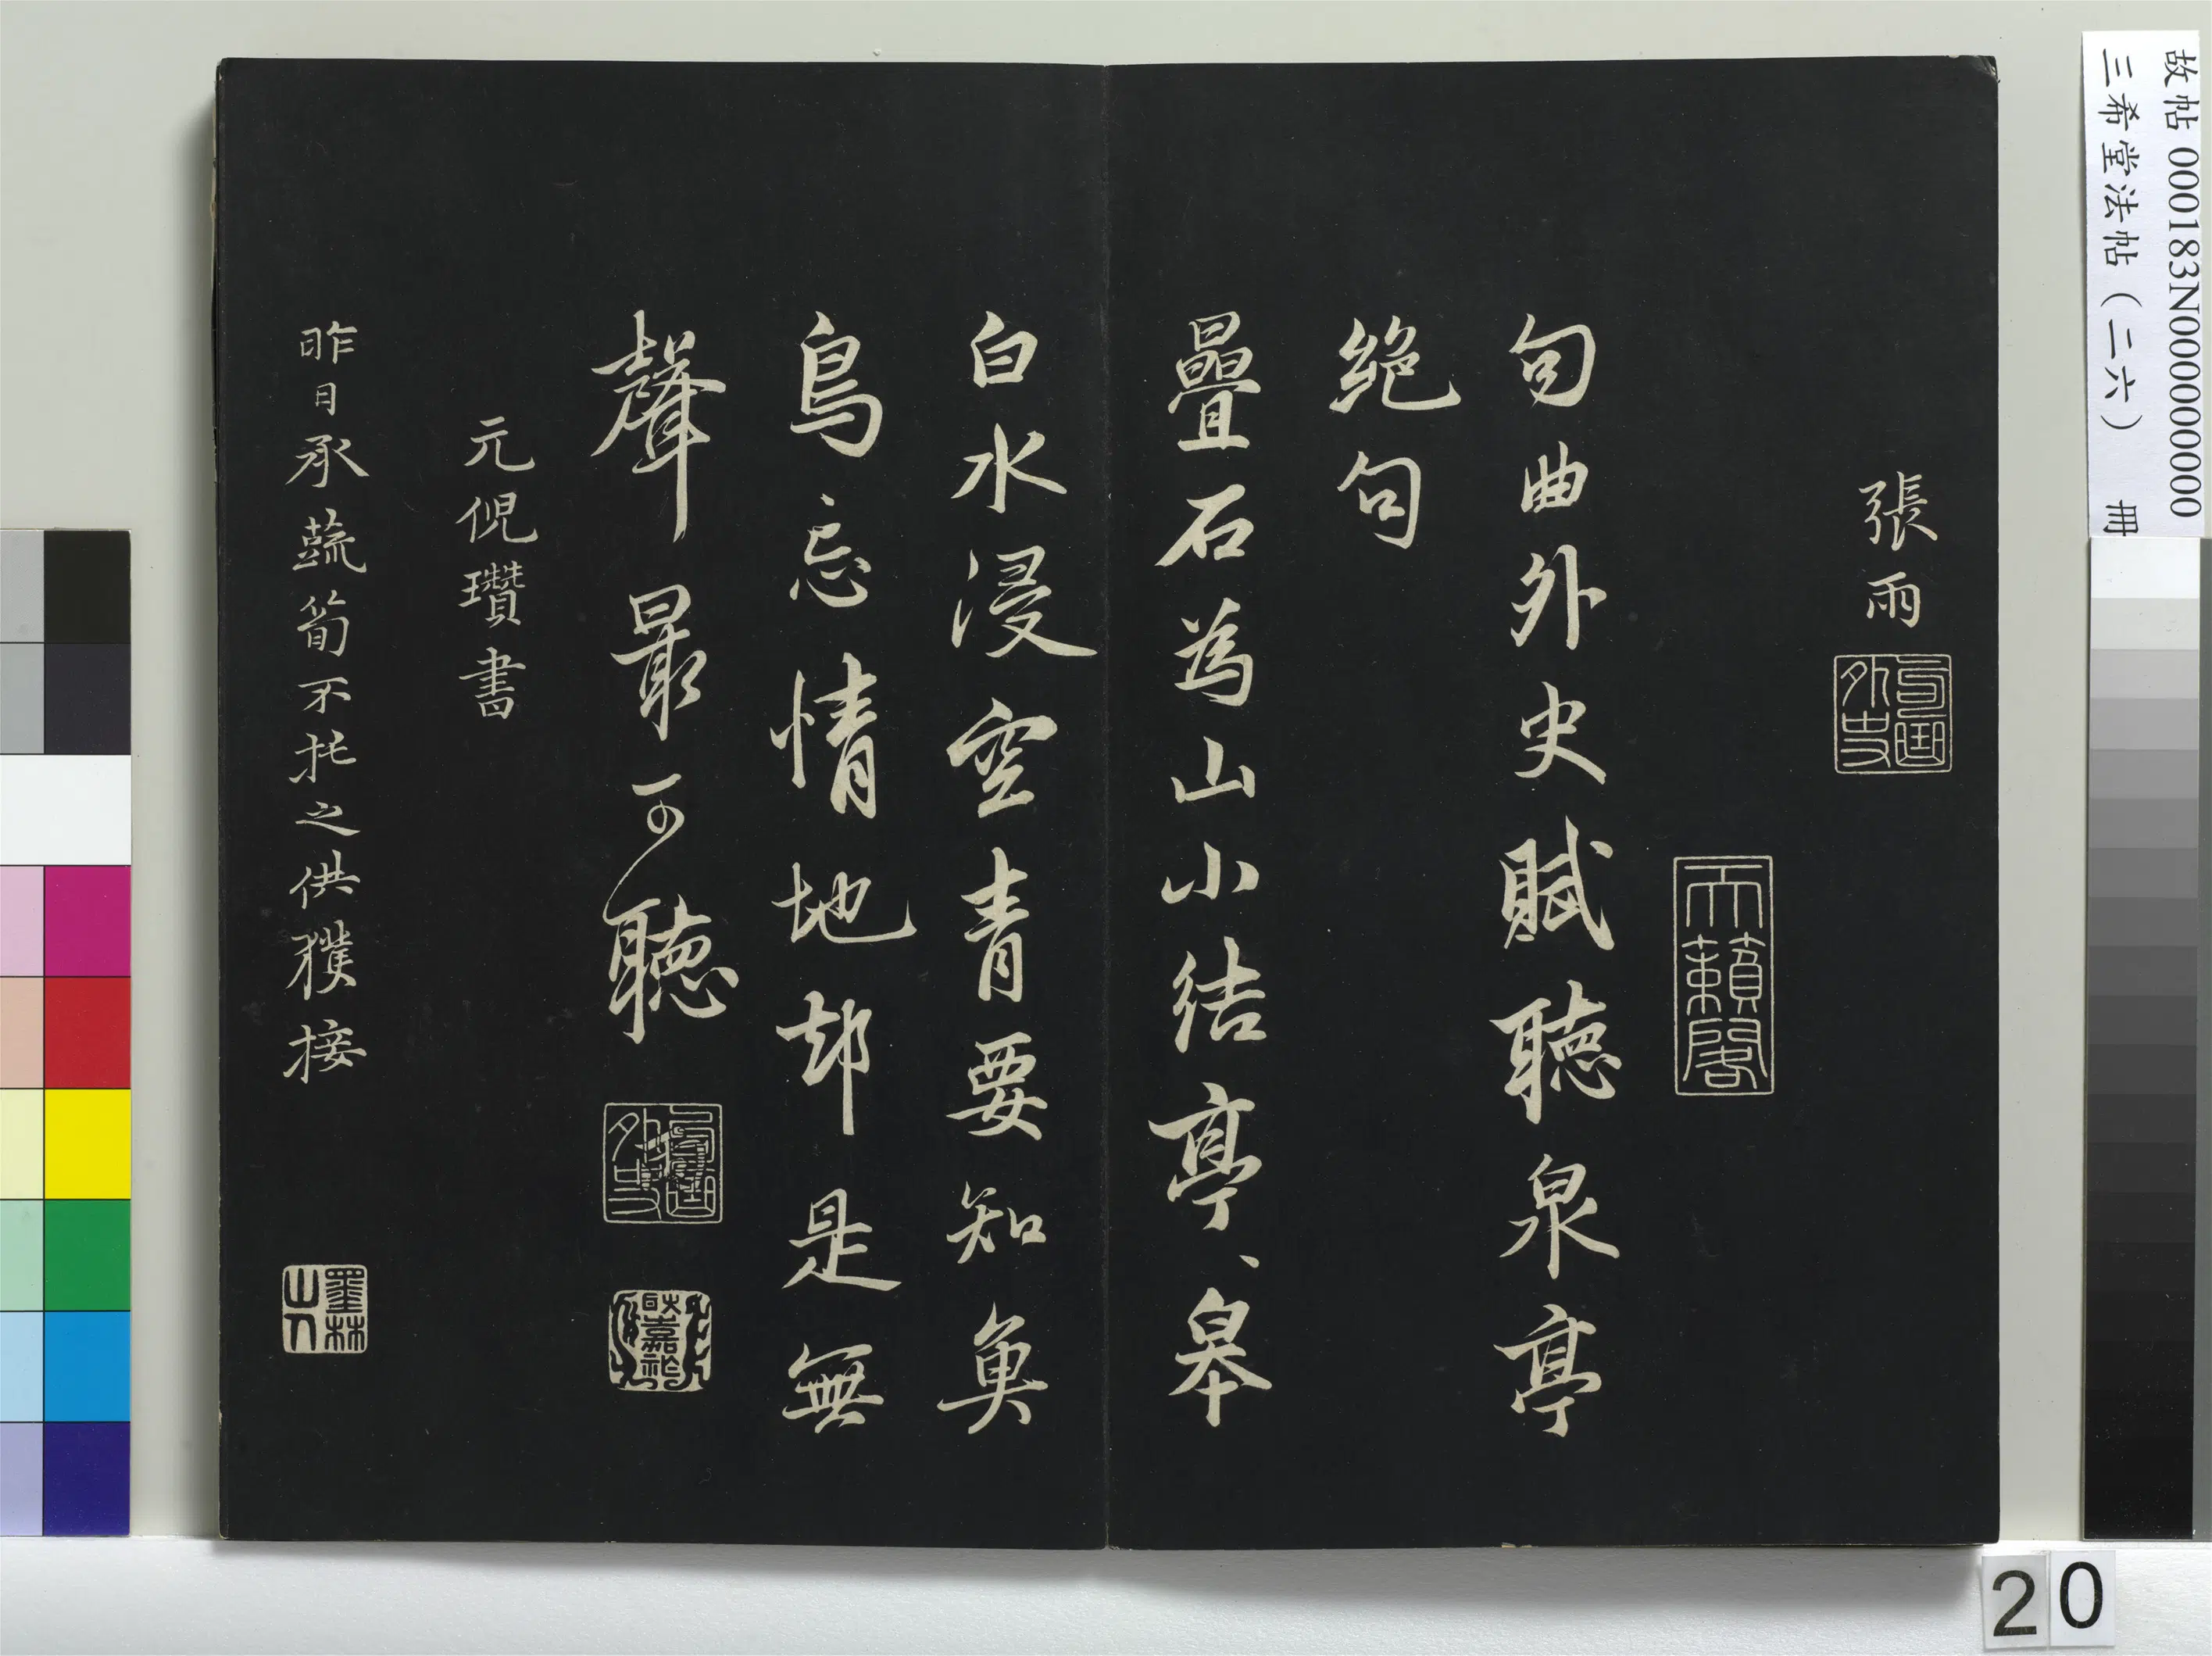 張雨
句曲外史
天籟閣
句曲外史賦聽泉亭
絶句
疊石為山小結亭、皋
白水浸空青要知魚
鳥忘情地却是無
聲最可聽
句曲外史
元倪瓚書
昨日承蔬筍不托之供獲接
墨林山人
故帖 000183N000000000
三希堂法帖（二六） 冊
20